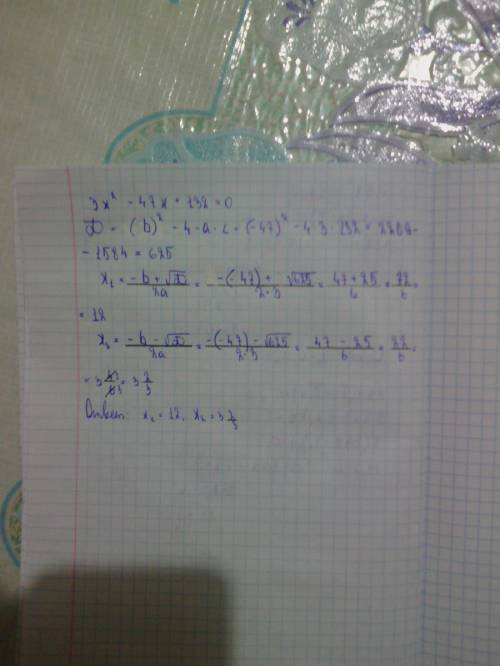 3x² - 47x + 132 = 0
D = (b)² - 4·a·c = (-47)² - 4·3·132 = 2209-
- 1584 = 625
x₁ = (-b + √D)/2a = (-(-47) + √625)/2·3 = (47 + 25)/6 = 72/6 =
= 12
x₂ = (-b - √D)/2a = (-(-47) - √625)/2·3 = (47 - 25)/6 = 22/6 =
= 3 4/6 = 3 2/3
Ответ: x₁ = 12, x₂ = 3 2/3